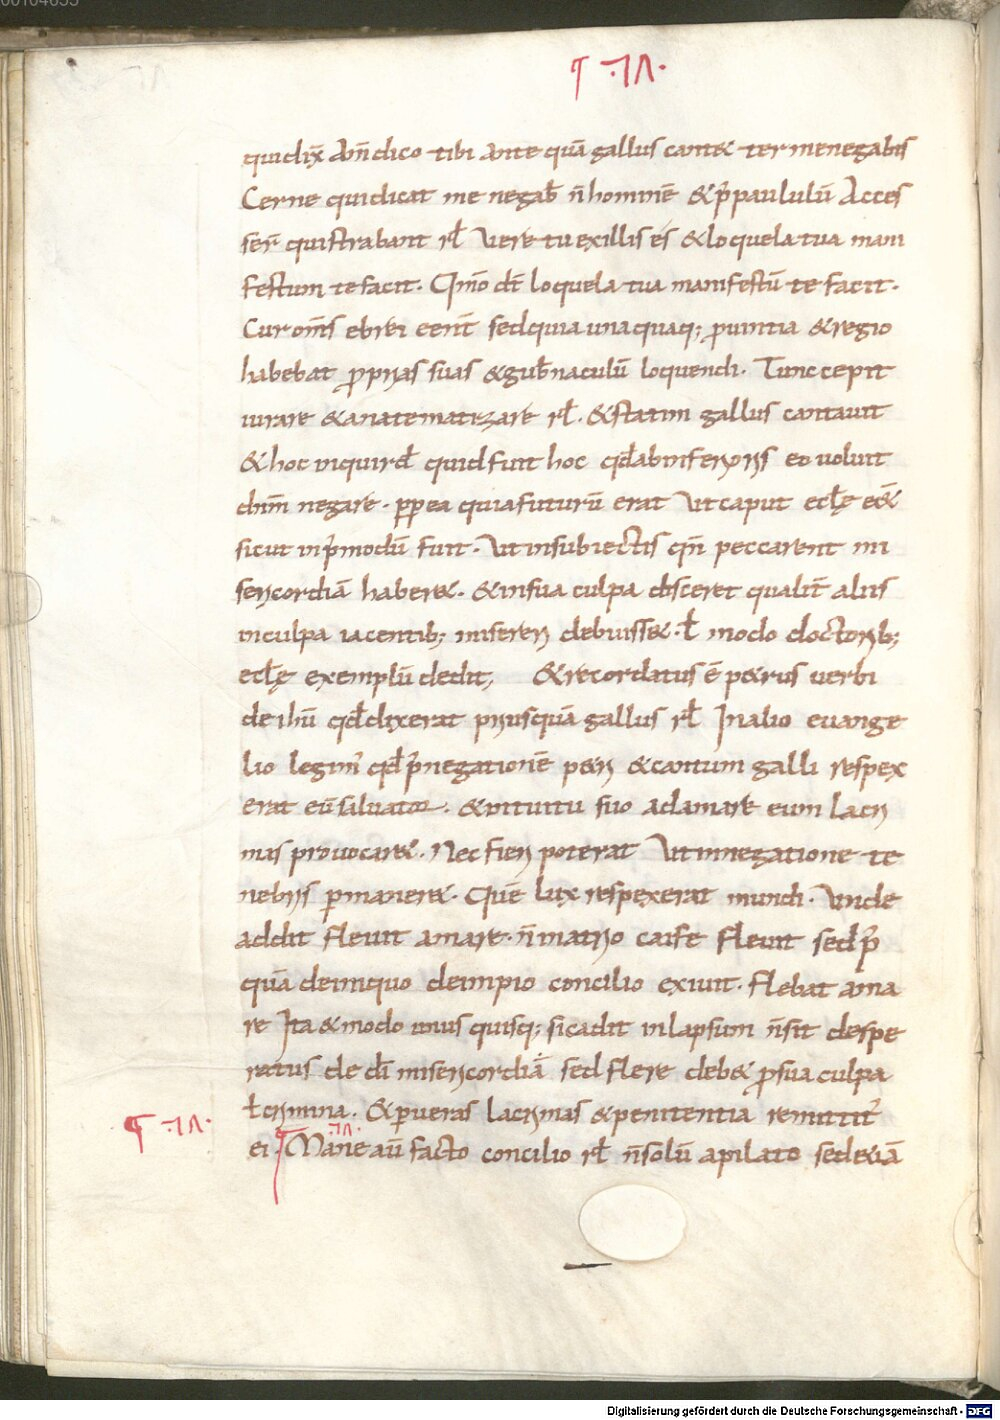 ¶ ·VI·
qui dix̄ Am̄ dico tibi ante quā gallus cant& ter me negabis
Cerne qui dicat me negab̄ n̄ hominē & p̄ paululū Acces
ser̄ qui strabant rl̄ Vere tu ex illis es & loquela tua mani
festum te facit. Qm̄o dt̄ loquela tua manifestū te facit.
Cur om̄s ebrei eent̄ sed quia unaquaq; ꝓuintia & regio
habebat ꝓprias suas & gub̄naculū loquendi. Tunc cepit
iurare & anatematizare rl̄. & statim gallus cantauit
& hoc inquird̄ quid fuit hoc qd̄ ab inferioris eo uoluit
dnm̄ negare. ꝓp ea quia futurū erat Vt caput eclę eē&
sicut in p̄modū fuit. Vt in subiectis qn̄ peccarent mi
sericordiā haber&. & in sua culpa disceret qualit̄ aliis
in culpa iacentib; misereri debuiss&. ł modo doctorib;
eclę exemplū dedit; & recordatus ē p&rus uerbi
de ihū qd̄ dixerat priusquā gallus rl̄ In alio euange
lio legim̄ qd̄ p̄ negationē p&ri & cantum galli respex
erat eū saluator. & intuitu suo ad amare eum lacri
mas prouocar&. Nec fieri poterat Vt in negatione te
nebris ꝑmaner&. Quē lux respexerat mundi. Vnde
addit fleuit amare. n̄ in atrio caife fleuit sed p̄
quā de iniquo de impio concilio exiuit. flebat ama
re Ita & modo unus quisq; si cadit in lapsum n̄ sit despe
ratus de dī misericordiā sed flere deb& ꝓ sua culpa
ł crimina. & ꝑ ueras lacrimas & penitentia remittit̄
¶ ·VI·
ei. ¶ ·VI· Mane aū facto concilio rl̄ n̄ solū a pilato sed &iā
Digitalisierung gefördert durch die Deutsche Forschungsgemeinschaft - DFG